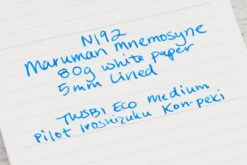 N192
Maruman Mnemosyne
80g white paper
5mm lined
TWSBI ECO Medium
Pilot Iroshizuku Kon-peki